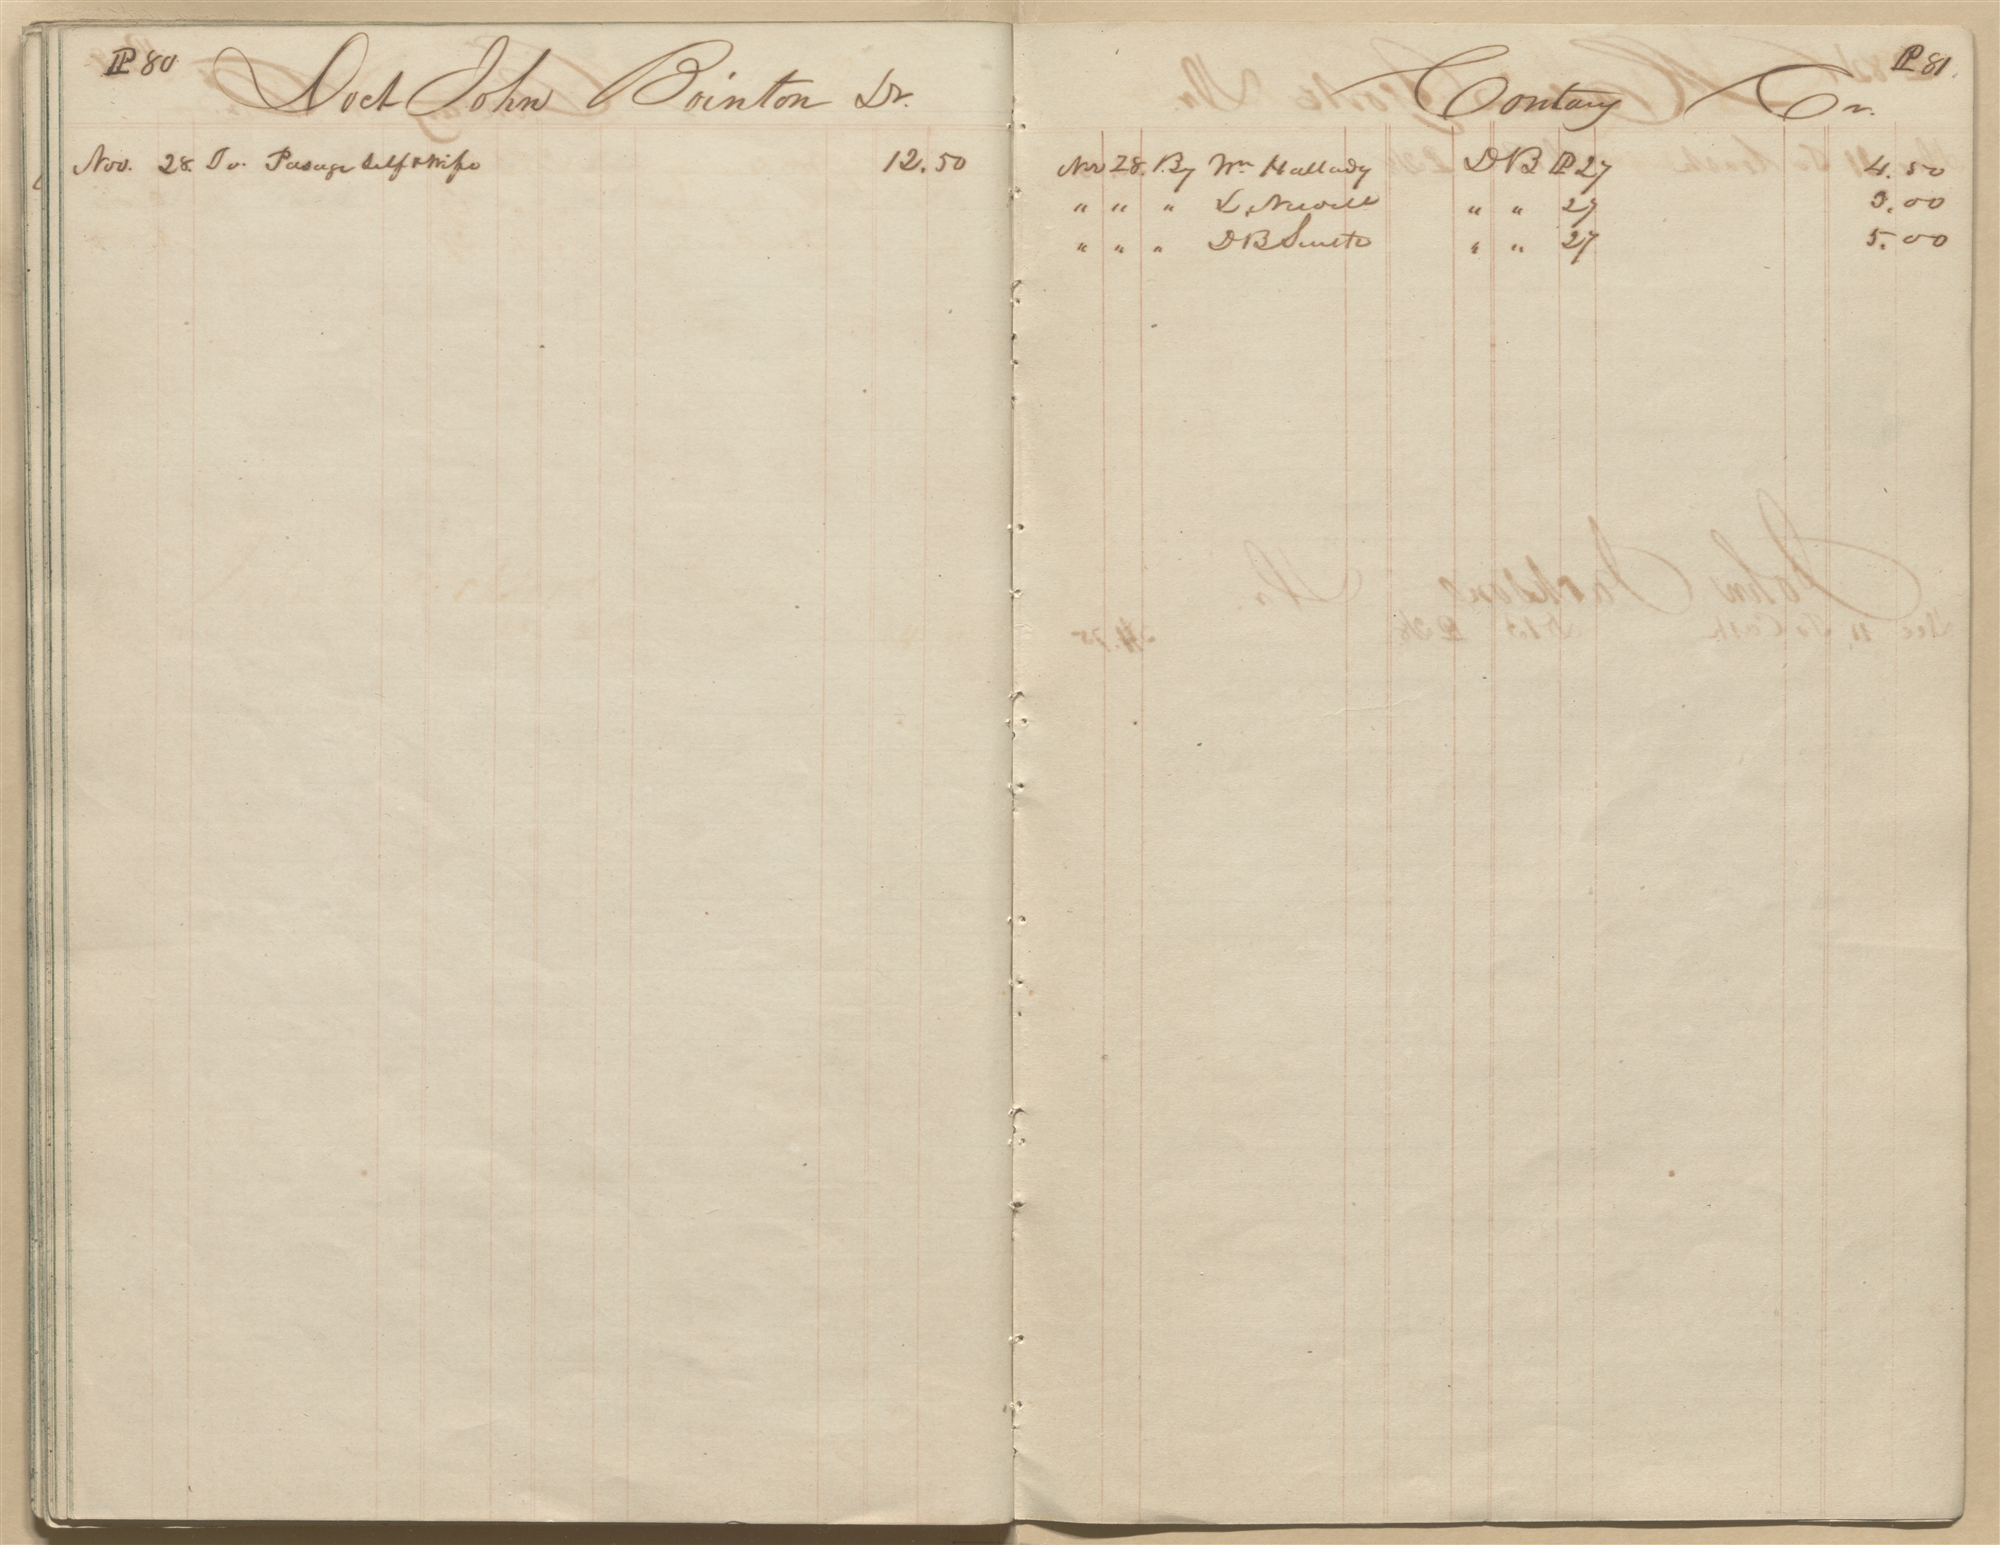 P 80
Doct John Bointon Dr.
Nov. 28. To. Pasage Self & Wife 12.50
P 81.
Contary Cr.
Nov 28. By Wm Hallady D B P 27 4.50
" " " L. Newell " " 27 3.00
" " " D B Smith " " 27 5.00